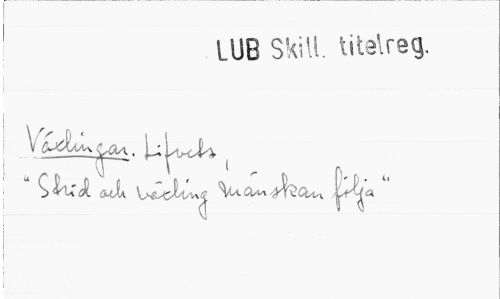 LUB Skill. titelreg.
Växlingar. Lifvets,
"Strid och växling mänskan följa"